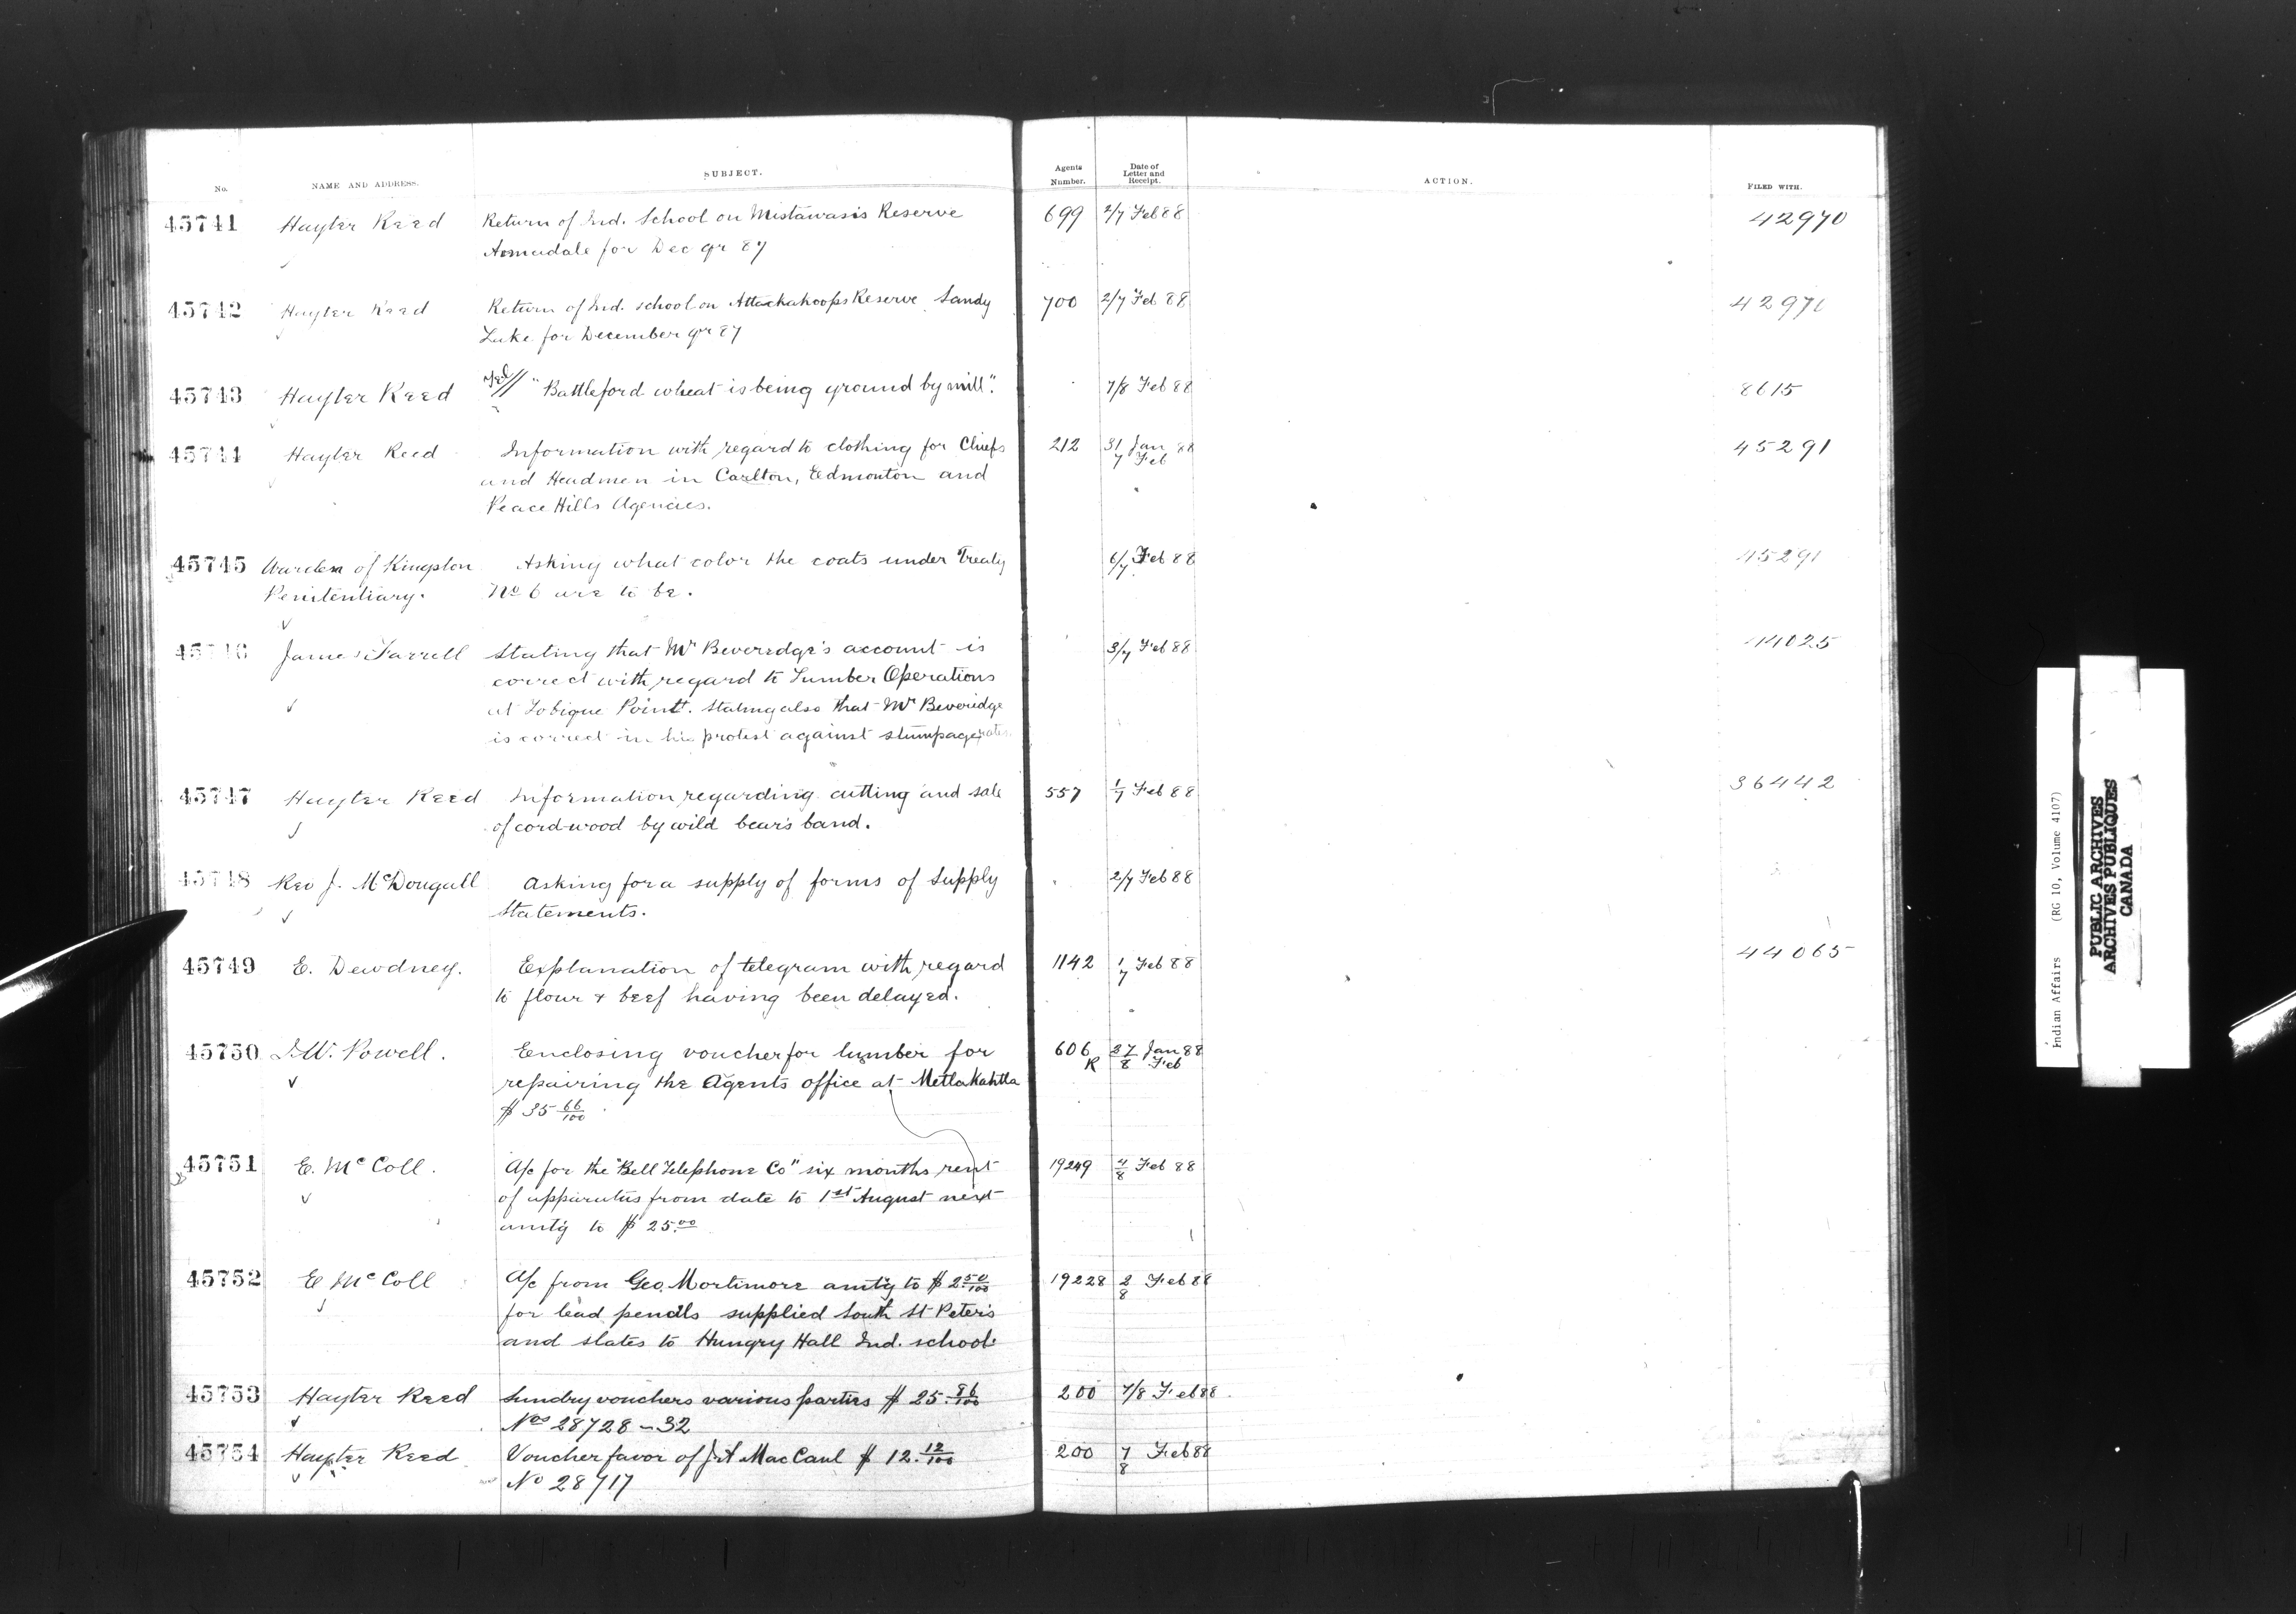 No. NAME AND ADDRESS. SUBJECT. Agents Number. Date of Letter and Receipt. ACTION. FILED WITH.
45741 Hayter Reed Return of Ind. School on Mistawasis Reserve 699 2/7 Feb 88 42970
for Dec qr 87
45742 Hayter Reed Return of Ind. school on Attackakoops Reserve Sandy 700 2/7 Feb 88 42971
Lake for December qr 87
45743 Hayter Reed Tel // "Battleford wheat is being ground by mill". 7/8 Feb 88 8615
45744 Hayter Reed Information with regard to clothing for Chiefs 212 31 Jan 88 45291
7 Feb
and Headmen in Carlton, Edmonton and
Peace Hills Agencies.
45745 Warden of Kingston Asking what color the coats under Treaty 6/7 Feb 88 45291
Penitentiary. No 6 are to be.
45746 James Farrell Stating that Mr Beveredge's account is 3/7 Feb 88 44025
correct with regard to Lumber Operations
at Tobique Point. Stating also that Mr Beveridge
is correct in his protest against stumpage rates.
45747 Hayter Reed Information regarding cutting and sale 557 1/7 Feb 88 36442
of cord-wood by wild bear's band.
45748 Rev J. McDougall Asking for a supply of forms of Supply 2/7 Feb 88
Statements.
45749 E. Dewdney. Explanation of telegram with regard 1142 1/7 Feb 88 44065
to flour & beef having been delayed.
45750 I.W. Powell. Enclosing voucher for lumber for 606 27 Jan 88
R 8 Feb
repairing the Agents office at Metlakahtla
$ 35 66/100
45751 E. McColl. A/c for the "Bell Telephone Co" six months rent 19249 4/8 Feb 88
of apparatus from date to 1st August next
amtg to $ 25.00
45752 E McColl A/c from Geo. Mortimore amtg to $ 2 50/100 19228 2/8 Feb 88
for lead pencils supplied South St Peter's
and slates to Hungry Hall Ind. school.
45753 Hayter Reed Sundry vouchers various parties $ 25 86/100 200 7/8 Feb 88
Nos 28728-32
45754 Hayter Reed Voucher favor of J.A MacCaul $ 12. 12/100 200 7/8 Feb 88
No 28717
Indian Affairs (RG 10, Volume 4107)
PUBLIC ARCHIVES
ARCHIVES PUBLIQUES
CANADA